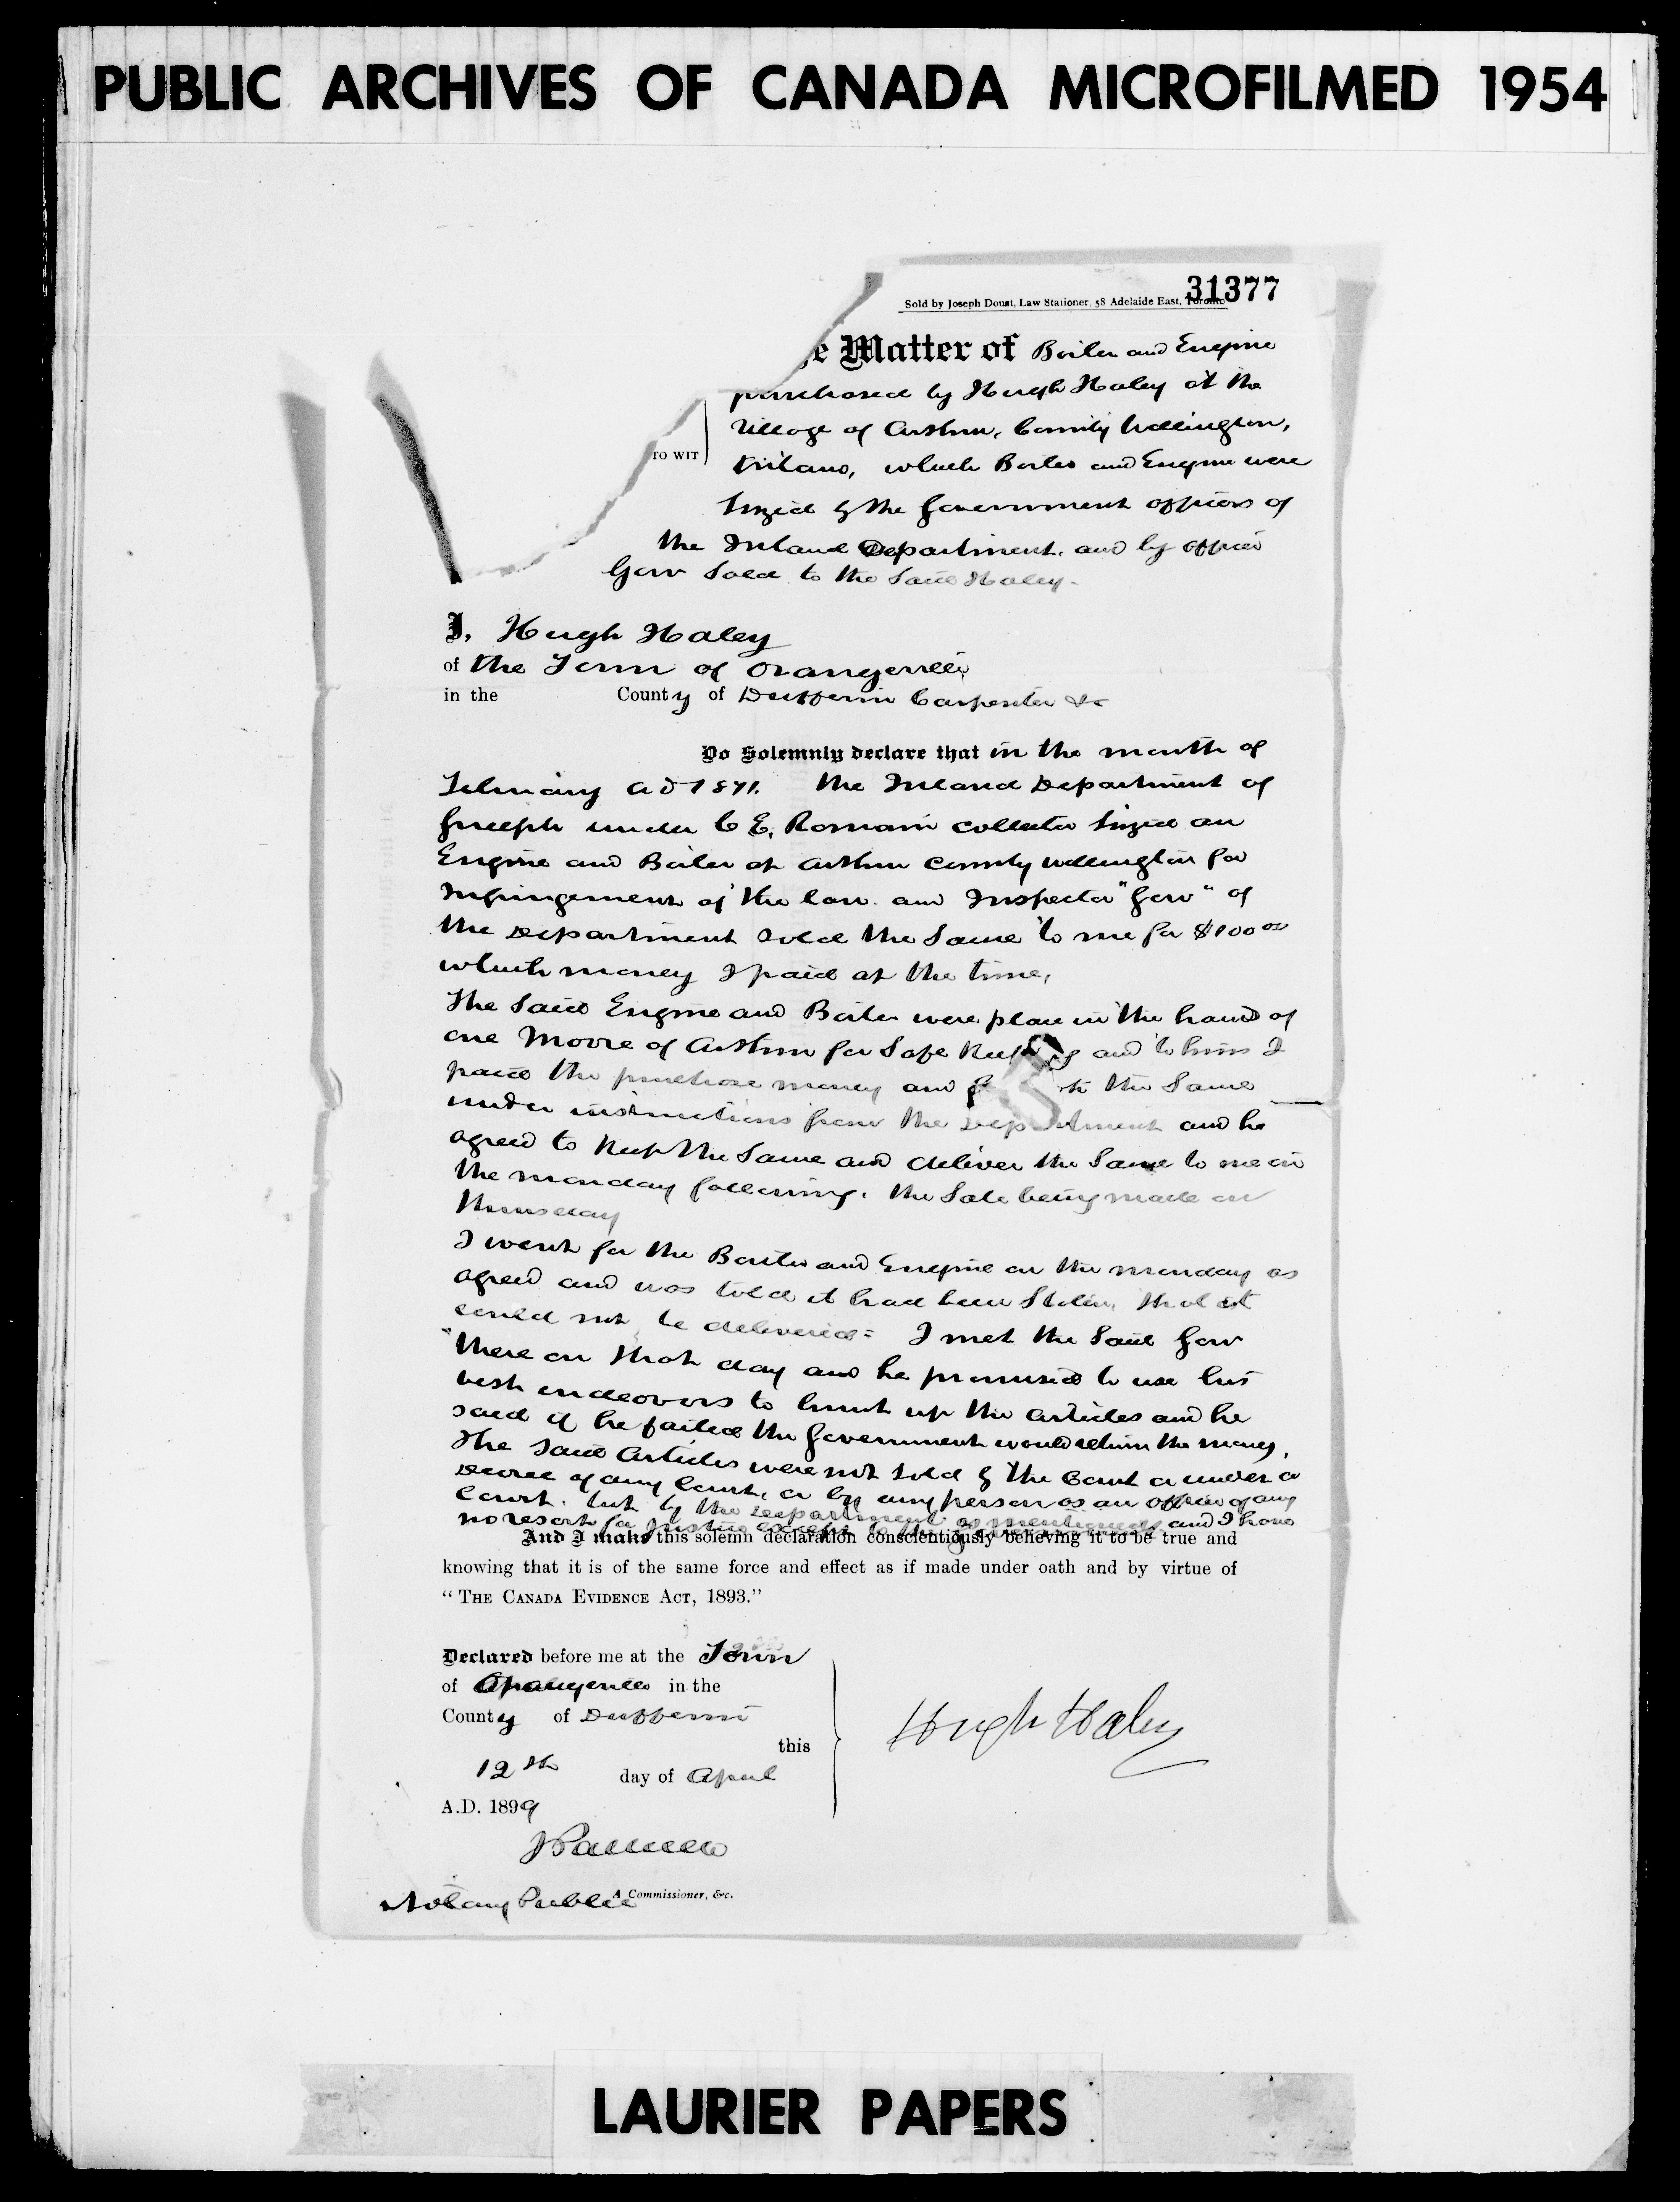 PUBLIC ARCHIVES OF CANADA MICROFILMED 1954
31377
Sold by Joseph Doust, Law Stationer, 58 Adelaide East, Toronto
e Matter of Boiler and Engine
purchased by Hugh Haley at the
Village of Arthur, County Wellington,
TO WIT
which Boiler and Engine were
Siezed by the Government officers of
the Inland Department. and by officer
Gow Sold to the Said Haley.
I, Hugh Haley
of the Town of Orangeville
in the County of Dufferin Carpenter &c
Do Solemnly declare that in the month of
February AD 1871. the Inland Department of
Guelph under C E. Romain collector Siezed an
Engine and Boiler at Arthur County Wellington for
Infringement of the law. and Inspector "Gow" of
the Department Sold the Same to me for $100 00
which money I paid at the time,
The Said Engine and Boiler were place in the hands of
one Moore of Arthur for Safe Keeping and to him I
paid the purchase money and the Same
under instructions from the Department and he
agreed to Keep the Same and deliver the Same to me on
the monday following. the Sale being made on
Thursday
I went for the Boiler and Engine on the monday as
agreed and was told it had been Stolen, that it
could not be delivered = I met the Said Gow
there on that day and he promised to use his
best endeavors to hunt up the articles and he
said if he failed the Government would return the money.
The Said Articles were not Sold by the Court or under a
Decree of any Court, or by any person as an officer of any
Court. but by the Department as mentioned and I have
no resort for Justice except to the Government
And I make this solemn declaration conscientiously believing it to be true and
knowing that it is of the same force and effect as if made under oath and by virtue of
“THE CANADA EVIDENCE ACT, 1893.”
Declared before me at the Town
of Orangeville in the
County of Dufferin
this
12th day of April
A.D. 1899
Hugh Haley
A Commissioner, &c.
Notary Public
LAURIER PAPERS